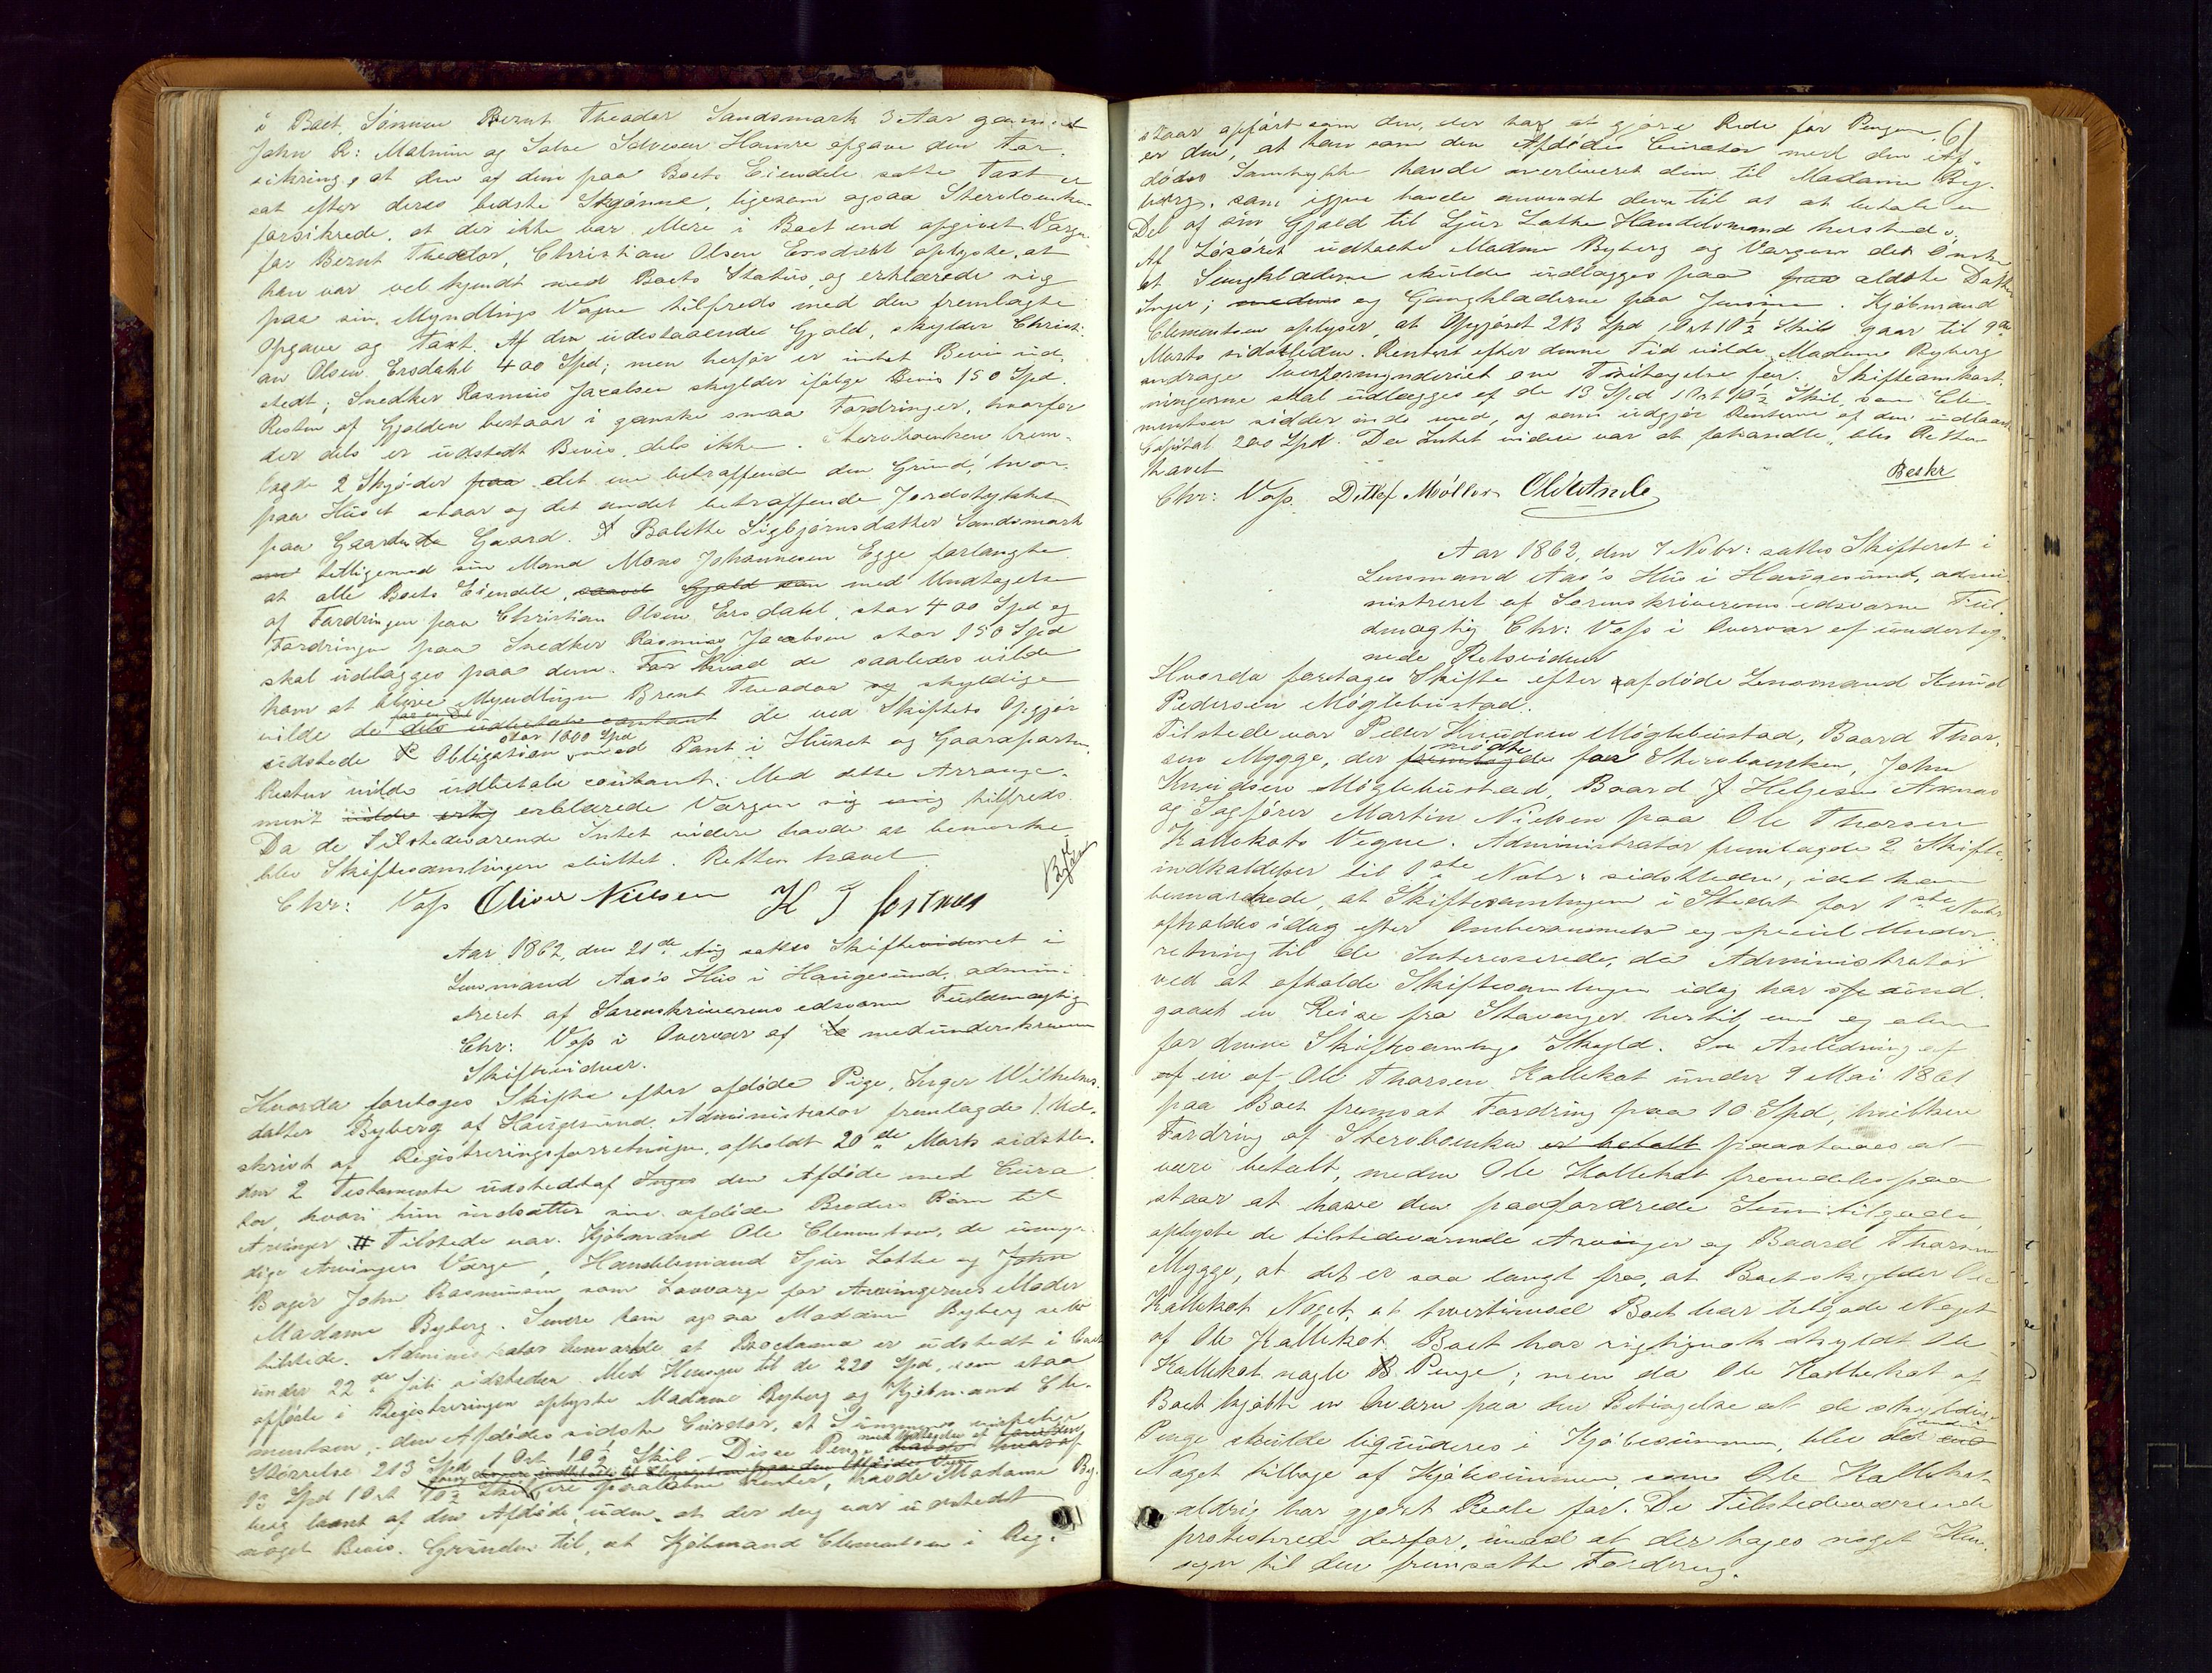 i Boet, Sønnen Bernt Theodor Sandsmark 3 Aar gammel
John R: Malmin og Salve Salvesen Hamre afgave den For-
sikring, at den af dem paa Boets Eiendele satte Taxt er
sat efter deres bedste Skjønne, ligesom ogsaa Sterboenken
forsikrede, at der ikke var Mere i Boet end opgivet. Værgen
for Bernt Theodor, Christian Olsen Ersdahl oplyste, at
han var vel kjendt med Boets Status, og erklærede sig
paa sin Myndlings Vegne tilfreds med den fremlagte
Opgave og Taxt. Af den udestaaende Gjæld, skylder Christi-
an Olsen Ersdahl 400 Spd; men herfor er intet Bevis ud-
stedt; Snedker Rasmus Jacobsen skylder ifølge Bevis 150 Spd.
Resten af Gjælden bestaar i ganske smaa Fordringer, hvorfor
der dels er udstedt Bevis, dels ikke. Sterboenken frem-
lagde 2 Skjøder paa det ene betræffende den Grund, hvor-
paa Huset staar og det andet betræffende Jordstykket
paa Gaarden Gaard. Bolette Sigbjørnsdatter Sandsmark
tilligemed sin Mand Mons Johannesen Egge forlangte
at alle Boets Eiendele, saavel Gjæld som med Undtagelse
af Fordringen paa Christian Olsen Ersdahl, stor 400 Spd og
Fordringen paa Snedker Rasmus Jacobsen stor 150 Spd
skal udlægges paa dem. For Hvad de saaledes vilde
kom at blive Myndlingen Brent Theodor og skyldige
for en Del
vilde de dels udbetale contant de ved Skiftets Opgjør
stor 1000 Spd
udstede Obligation med Pant i Huset og Gaardparten,
Resten vilde udbetale contant. Med dette Arrange-
ment vilde erklærede Værgen sig tilfreds.
Da de Tilstedeværende Intet videre havde at bemærke
blev Skiftesamlingen sluttet. Retten hævet
Chr: Voss Oliver Nielsen
Aar 1862, den 21de Aug sattes Skifteret i
Lensmand Aas's Hus i Haugesund, admini-
streret af Sorenskriverens edsvorne Fuldmægtig
Chr: Voss i Overvær af medunderskrevne
Skiftevidner.
Hvorda foretoges Skifte efter afdøde Pige, Inger Wilhelms-
datter Byberg af Haugesund. Administrator fremlagde 1. Ud-
skrivt af Registreringsforretningen, afholdt 20de Marts sidstle-
den 2 Testamente udstedt af Inger den Afdøde med Cura-
tor, hvori hun indsætter sin afdøde Broders Børn til
Arvinger. Tilstede var Kjøbmand Ole Clementsen, de umyn-
dige Arvingers Værge, Handelsmand Sjur Lothe og John
Bager John Rasmussen som Lavværge for Arvingernes Moder
Madame Byberg. Senere kom ogsaa Madame Byberg selv
tilstede. Administrator bemærkede, at Proclama er udstedt i Boet
under 22de Juli sidstleden. Med Hensyn til de 220 Spd, som staa
opførte i Registreringen oplyste Madame Byberg og Kjøbmand Cle-
mentsen, den Afdødes sidste Curator, at Summens virkelige
Størrelse 213 Spd 1 Ort 10½ Skil. Disse Penge med Undtagelse af
13 Spd 1 Ort 10½ Skil paaløbne Renter, havde Madame By-
berg laant af den Afdøde, uden, at der dog var udstedt
noget Bevis. Grunden til, at Kjøbmand Clementsen i Reg.
61
staar opført som den, der har at gjøre Rede for Pengene,
er den, at han som den Afdødes Curator med den Af-
dødes Samtykke havde overleveret dem til Madame By-
berg, som igjen havde anvendt dem til at at betale en
Del af sin Gjæld til Sjur Lothe Handelsmand hersteds.
Af Løsøret udtalte Madam Byberg og Værgen det Ønske
at Sengklæderne skulde udlægges paa paa ældste Datter
Inger; medens og Gangklæderne paa Jensine. Kjøbmand
Clementsen oplyser, at Opgjøret 213 Spd 1 Ort 10½ Skil gaar til 9de
Marts sidstleden. Renters efter denne Tid vilde Madame Byberg
andrage Overformynderiet om Fritagelse for. Skifteomkost-
ningerne skal udlægges af de 13 Spd 1 Ort 10½ Skil, som Cle-
mentsen sidder inde med, og som udgjør Renterne af den udlaante
Capital 200 Spd. Da Intet videre var at forhandle, blev Retten
hævet
Beskr
Chr: Voss. Ditlef Møller
Aar 1862, den 7 Nobr: sattes Skifteret i
Lensmand Aas's Hus i Haugesund, admi-
nistreret af Sorenskriverens edsvorne Ful-
dmægtig Chr: Voss i Overvær af underteg-
nede Retsvidner
Hvorda foretages Skifte efter afdøde Lensmand Knud
Pedersen Møglebustad.
Tilstede var Peder Knudsen Møglebustad, Baard Thor-
mødte
sen Mygge, der fremlagde for Sterboenken, John
Knudsen Møglebustad, Baard J Helgesen
og Sagfører Martin Nielsen paa Ole Thorsen
Kallekots Vegne. Administrator fremlagde 2 Skifte-
indkaldelser til 1ste Nobr: sidstleden, idet han
bemærkede, at Skiftesamlingen i Stedet for 1ste Nobr
afholdes idag efter Omberammelse og speciel Under-
retning til de Interesserede, da Administrator
ved at afholde Skiftesamlingen idag har
gaaet en Reise fra Stavanger hertil ene og alene
for denne Skiftesamlings Skyld. I Anledning af
af en af Ole Thorsen Kallekot under 9 Mai 1861
paa Boet fremsat Fordring paa 10 Spd, hvilken
Fordring af Sterboenken er betalt paastaaes at
være betalt, meden Ole Kallekot fremdeles paa-
staar at have den paafordrede Sum tilgode,
oplyste de tilstedeværende Arvinger og Baard Thorsen
Mygge, at det er saa langt fra, at Boet skylder Ole
Kallekot Noget, at tvertimod Boet har tilgode Noget
af Ole Kallekot. Boet har rigtignok skyldt Ole
Kallekot nogle Penge; men da Ole Kallekot af
Boet kjøbte en Qværn paa den Betingelse at de skyldige
Penge skulde liqvideres i Kjøbesummen, blev der endda
Noget tilbage af Kjøbesummen, som Ole Kallekot
aldrig har gjort Rede for. De Tilstedeværende
protesterede derfor, imod at der tages noget Hen-
syn til den fremsatte Fordring.